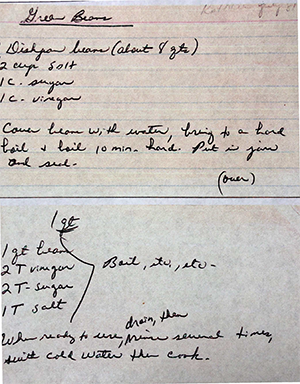 Green Beans
Dishpan beans (about 8 qts)
2 cups salt
1 c. sugar
1 c. vinegar
Cover beans with water, bring to a hard
boil & boil 10 min. hard. Put in jars
and seal.
(over)
1 qt
1 qt beans
2 T vinegar
2 T sugar
1 T salt
Boil, etc., etc.
When ready to use, drain, then rinse several times,
with cold water then cook.